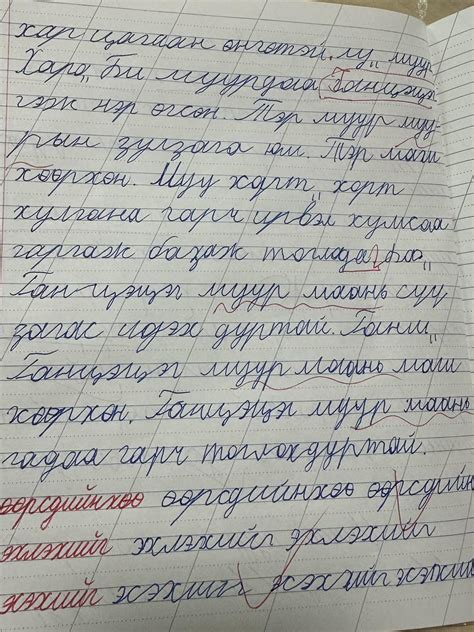 хар цагаан өнгөтэй. муур
Хара, Би муурдаа Ганцэцэг
гэж нэр өгсөн. Тэр муур муу-
рын зулзага юм. Тэр маш
хөөрхөн. Муу
хулгана гарч ирвэл хумсаа
гаргаж базаж тоглодог
Ганцэцэг муур маань сүү
загас идэх дуртай.
Ганцэцэг муур маань маш
хөөрхөн. Ганцэцэг муур маань
гадаа гарч тоглохдуртай.
өөрсдийнхөө өөрсдийнхөө өөрсдийн
эхлэхийг эхлэхийг эхлэхийг
эсэхийг эсэхийг эсэхийг эсэхийг